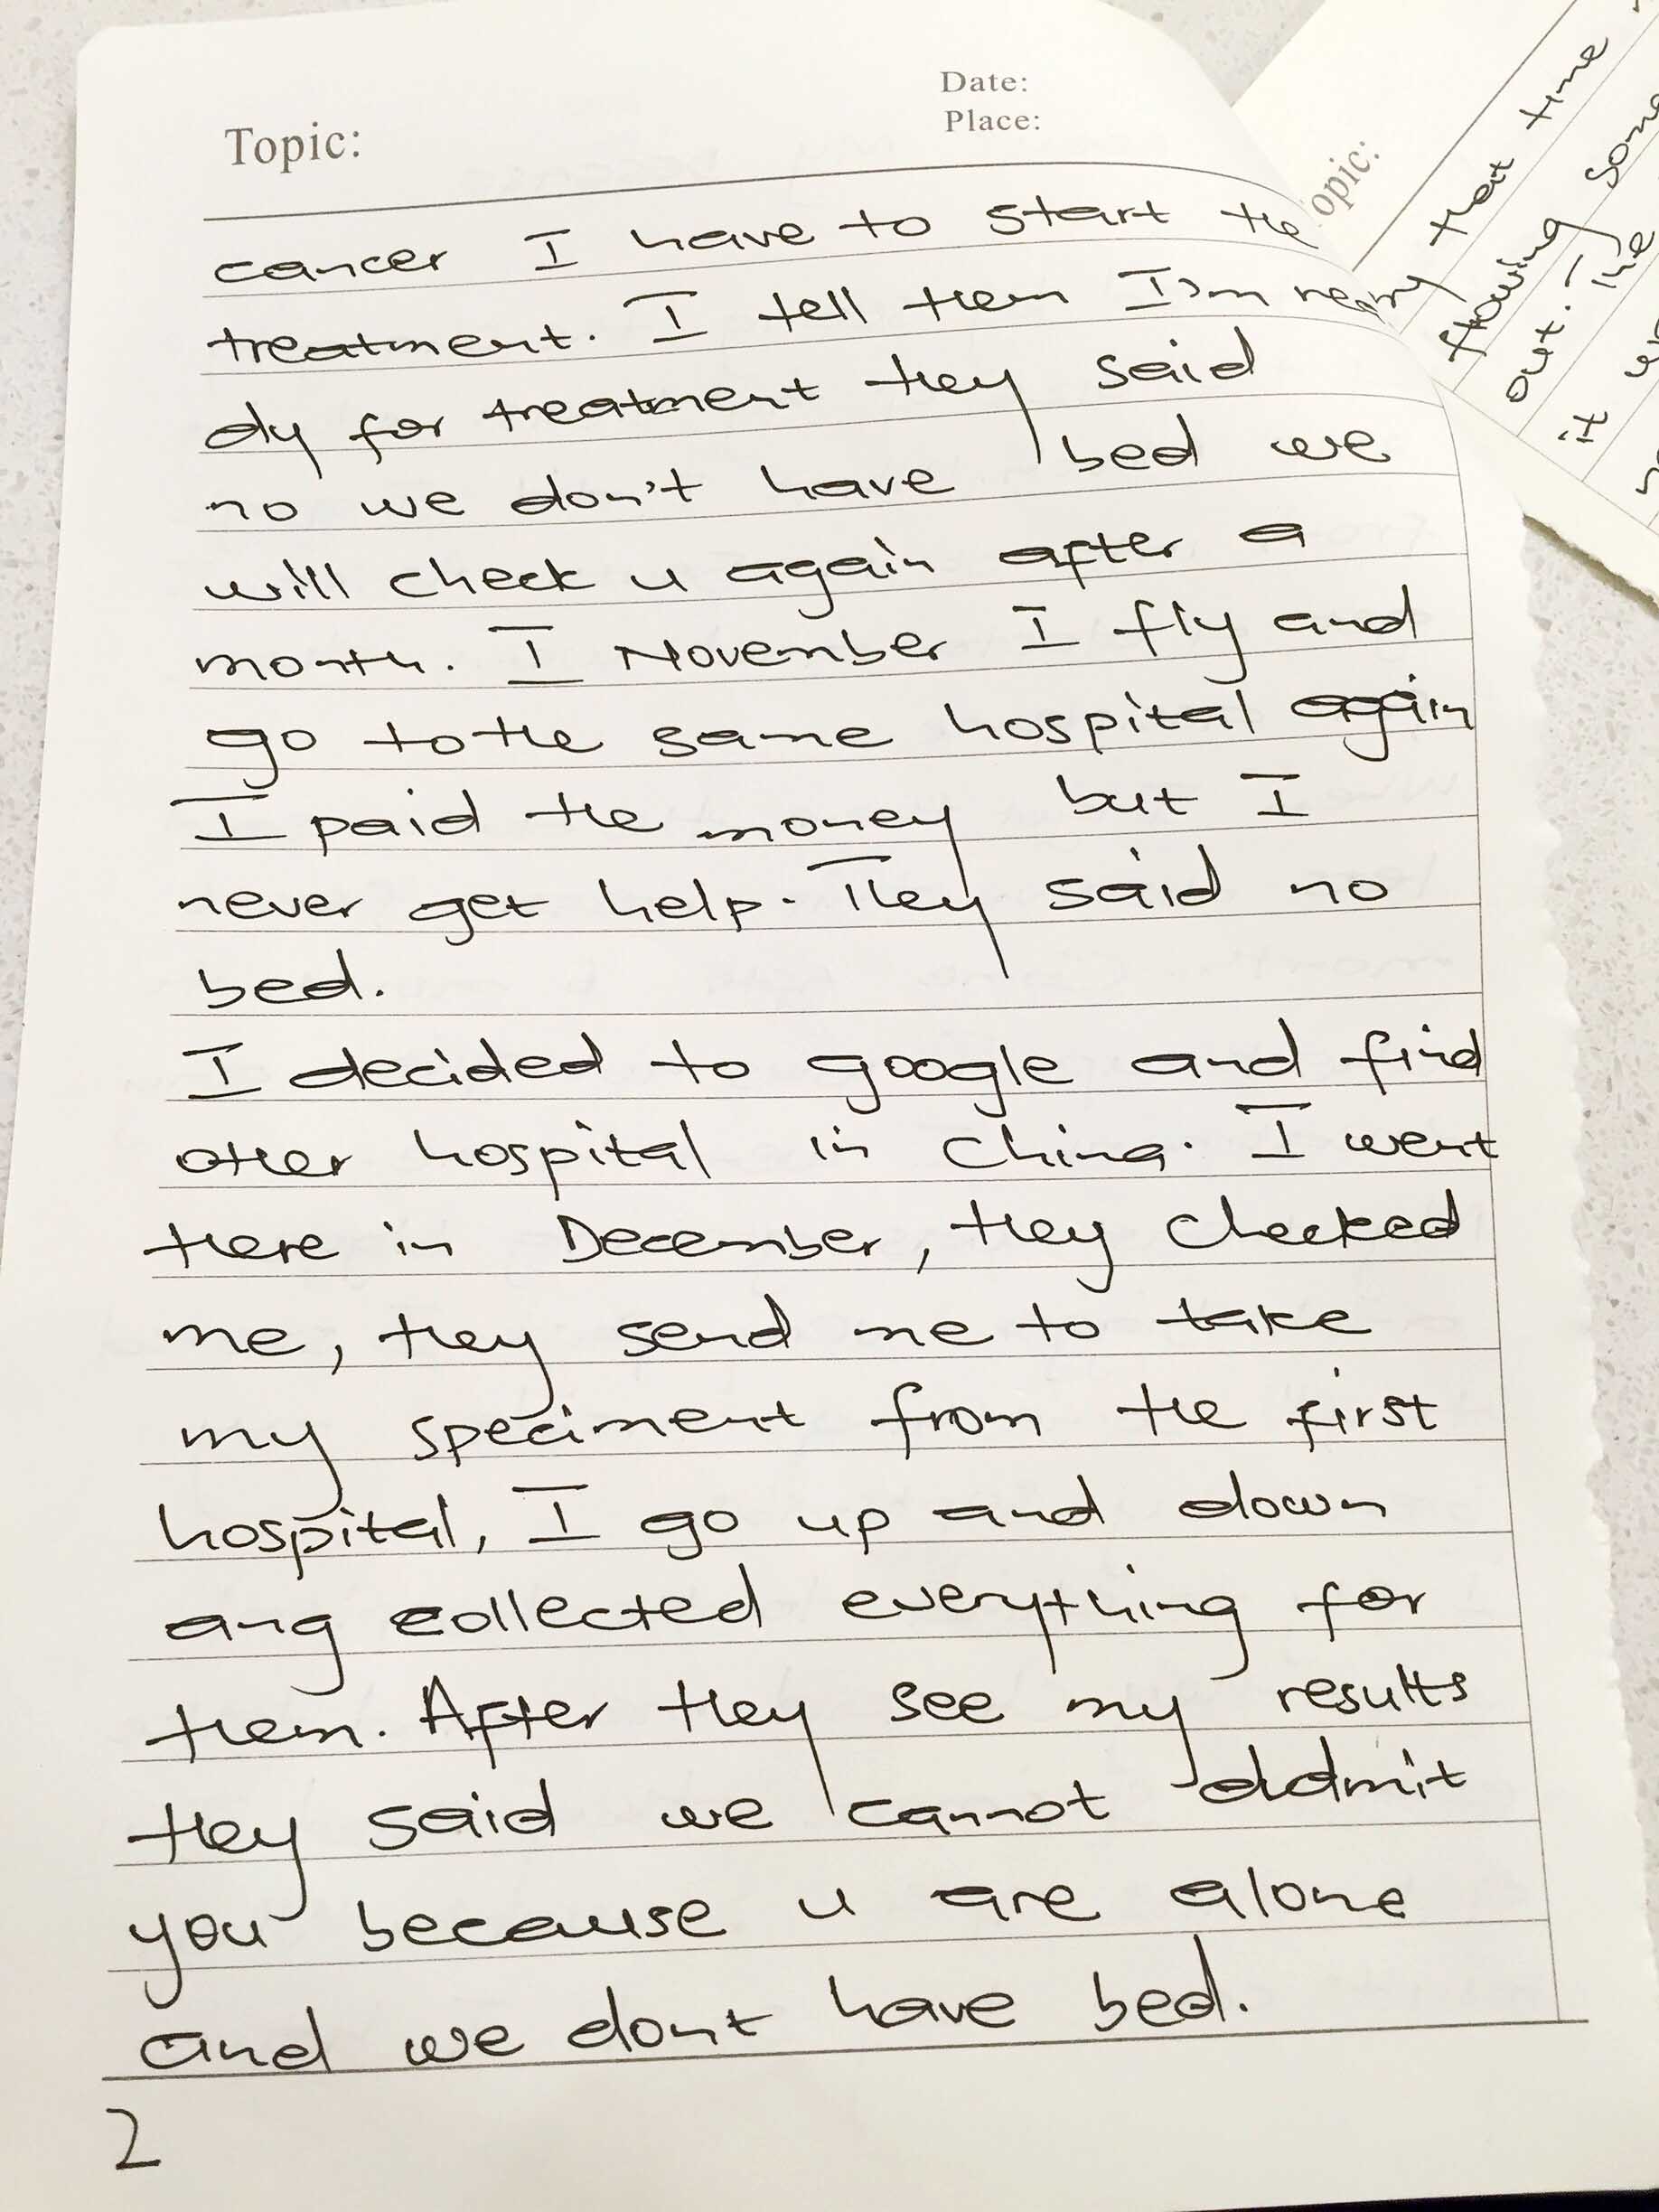 Date:
Place:
Topic:
cancer I have to start the
treatment. I tell them I'm rea
dy for treatment they said
no we don't have bed we
will check u again after a
month. I November I fly and
go to the same hospital again
I paid the money but I
never get help. They said no
bed.
I decided to google and find
other hospital in China. I went
there in December, they checked
me, they send me to take
my speciment from the first
hospital, I go up and down
ang collected everything for
them. After they see my results
they said we cannot addmit
you because u are alone
and we dont have bed.
2
opic:
that time
flowing some
out. The
it